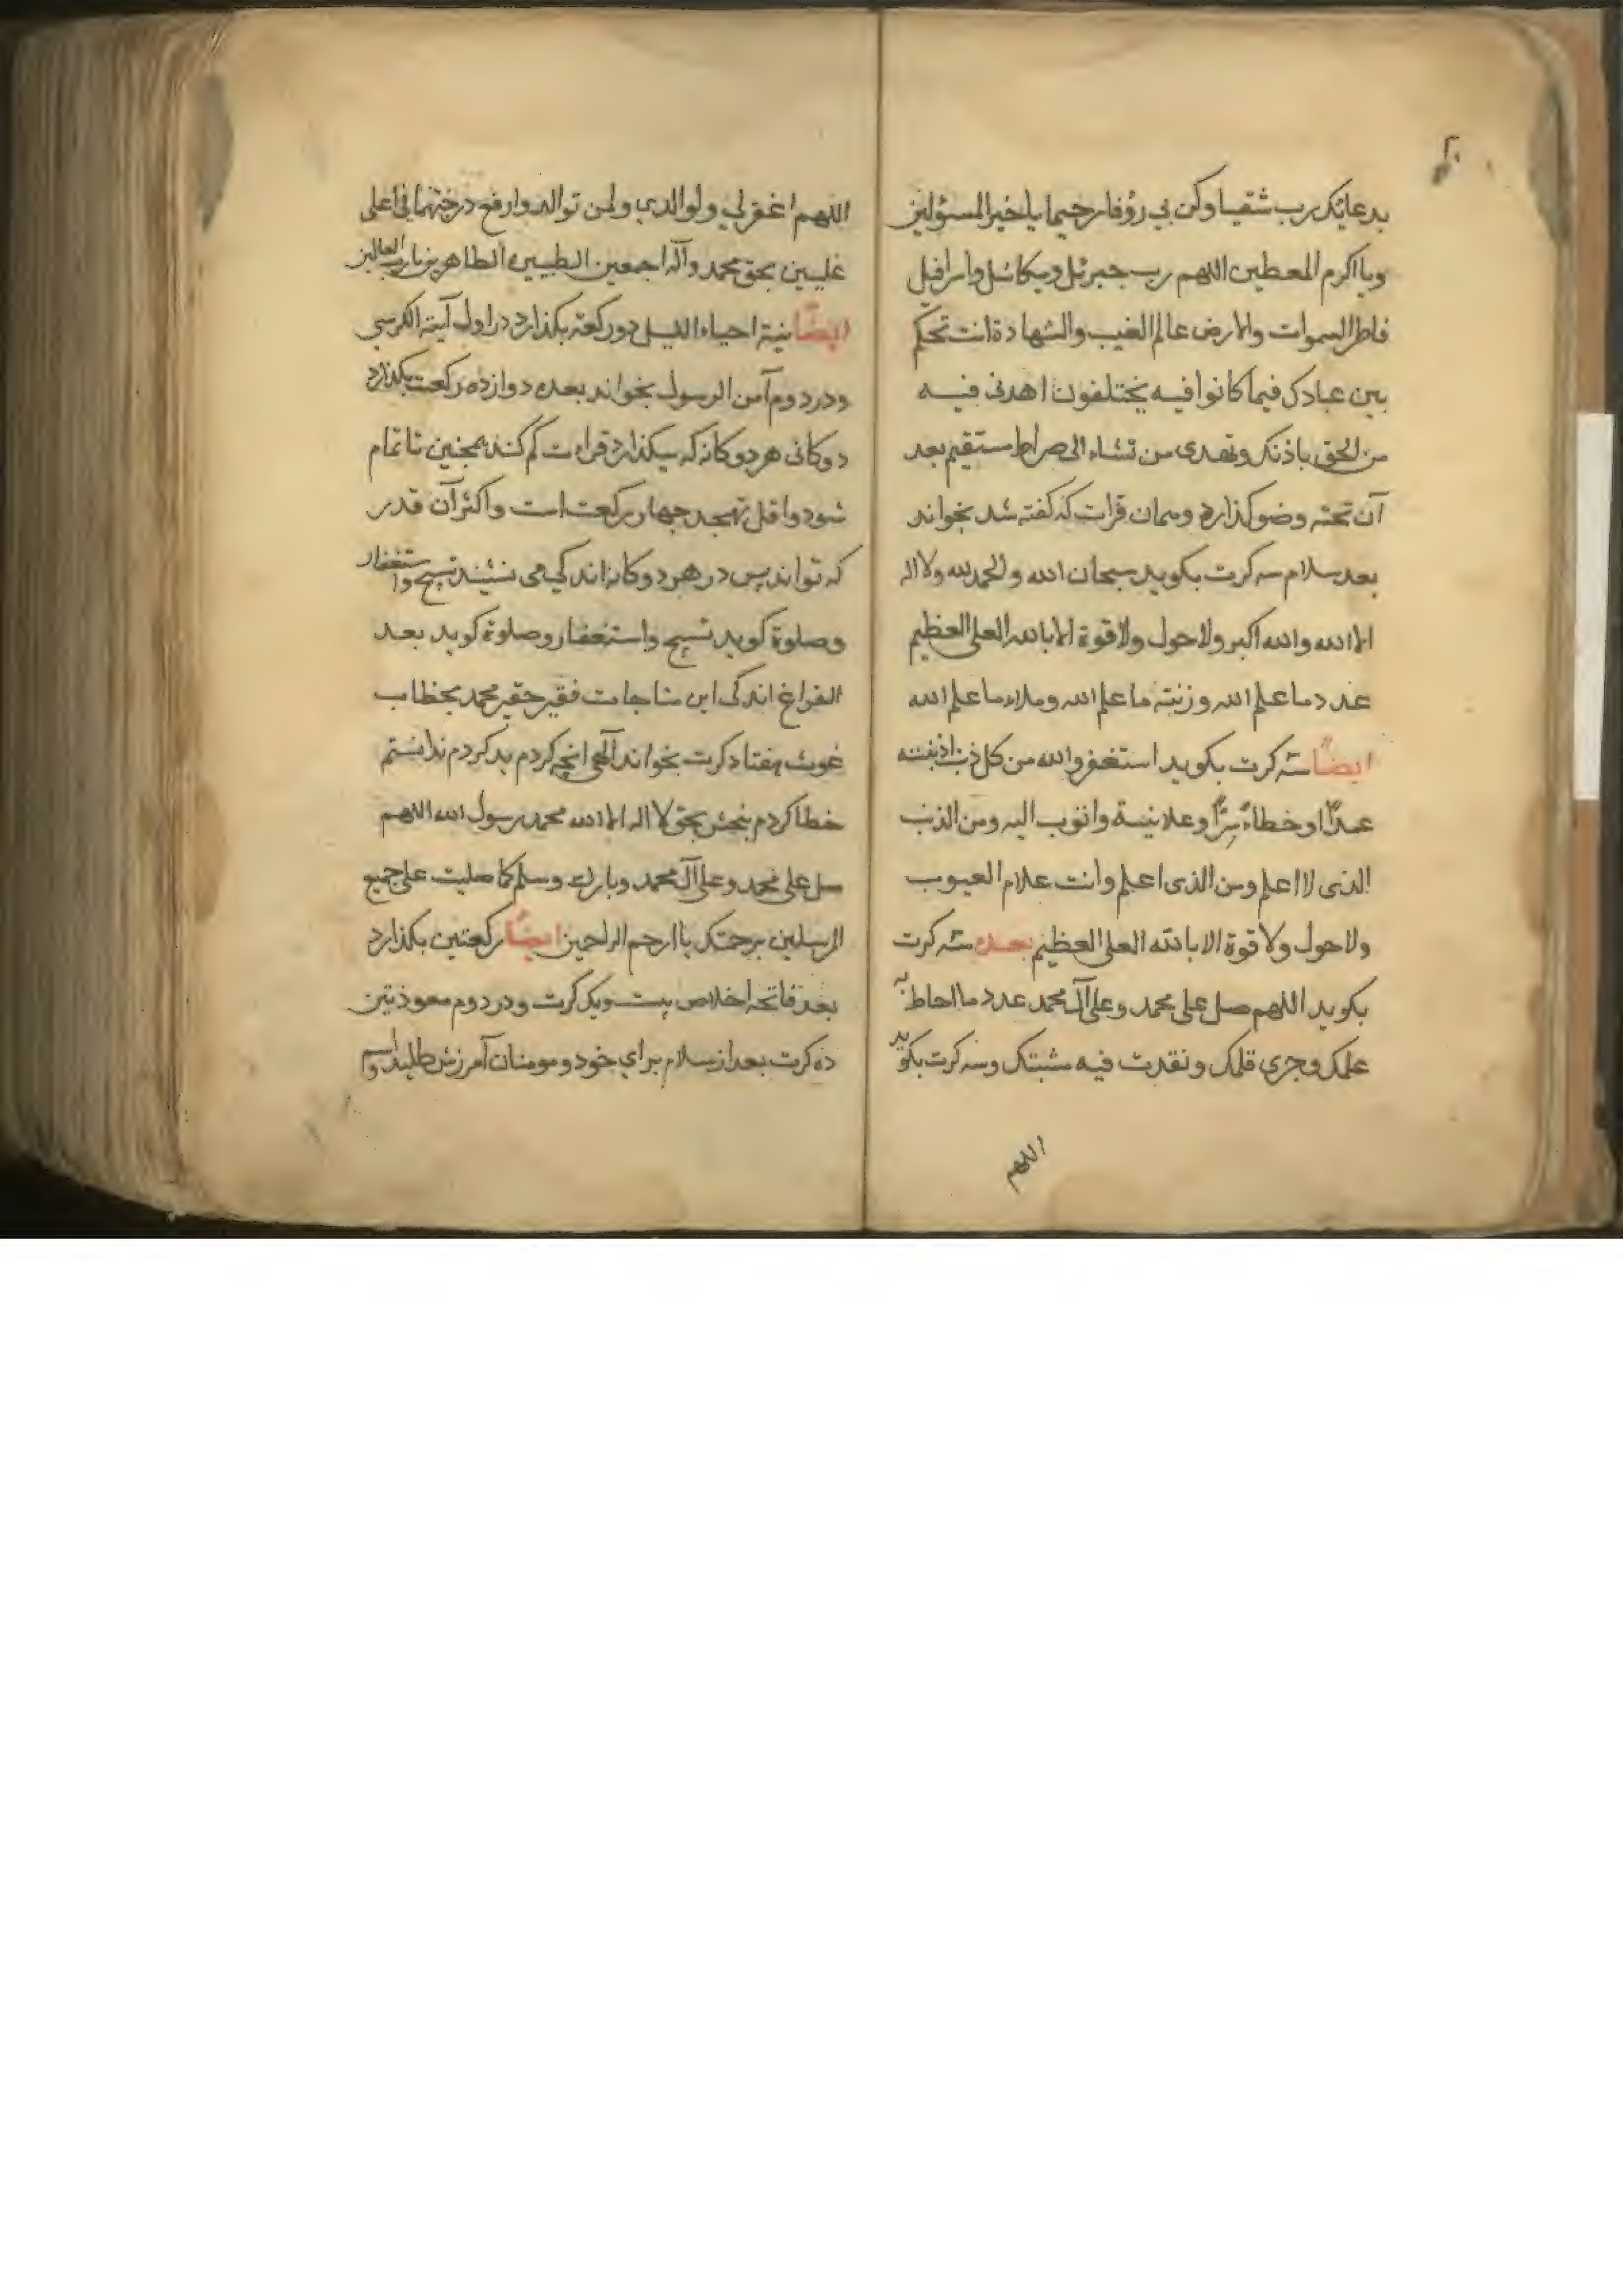 ۲۰
بدعائک رب شقیا وکن بی رؤفا رحیما یا خیر المسؤلین
ویا اکرم المعطین اللهم رب جبرئل ومیکائل واسرافیل
فاطر السموات والارض عالم الغیب والشهادة انت تحکم
بین عبادک فیما کانوا فیه یختلفون اهدنی فیه
من الحق باذنک وتهدی من تشاء الی صراط مستقیم بعد
آن تحته وضو کذارد وهمان قرات که کفته شد بخواند
بعد سلام سه کرت بکوید سبحان الله والحمد لله ولا اله
الا الله والله اکبر ولا حول ولا قوة الا بالله العلی العظیم
عدد ما علم الله وزنته ما علم الله وملاء ما علم الله
ایضًا سه کرت بکوید استغفر والله من کل ذنب اذنبته
عمدًا او خطاءً سِرًّا وعلانیة واتوب الیه ومن الذنب
الذی لا اعلم ومن الذی اعلم وانت علام العیوب
ولا حول ولا قوة الا بالله العلی العظیم بعده سه کرت
بکوید اللهم صل علی محمد وعلی آل محمد عدد ما احاط به
علمک وجری قلمک ونفدت فیه مشیتک وسه کرت بکوید
اللهم
اللهم اغفرلی ولوالدی ولمن توالد وارفع درجتهما فی اعلی
علیین بحق محمد وآله اجمعین الطیبین الطاهرین یا رب العالمین
ایضًا نیة احیاء اللیل دو رکعته بکذارد در اول آیته الکرسی
ودر دوم آمن الرسول بخواند بعده دوازده رکعت بکذارد
دوکانی هر دوکانه که میکذارد قراءت کم کند همچنین تا تمام
شود واقل تهجد چهار رکعت است واکثر آن قدر
که تواند پس در هر دوکانه اندکی می نشیند تسبیح واستغفار
وصلوة کوید تسبیح واستغفار وصلوة کوید بعد
الفراغ اندکی این مناجات فقیر حقیر محمد بخطاب
غوث هفتاد کرت بخواند آلهی انچه کردم بد کردم ندانستم
خطا کردم ببخش بحق لا اله الا الله محمد رسول الله اللهم
صل علی محمد وعلی آل محمد وبارک وسلم کما صلیت علی جمیع
المرسلین برحمتک یا ارحم الراحمین ایضًا رکعتین بکذارد
بعد فاتحه اخلاص بیست ویک کرت ودر دوم معوذتین
ده کرت بعد از سلام برای خود ومومنان آمرزش طلبد واسم